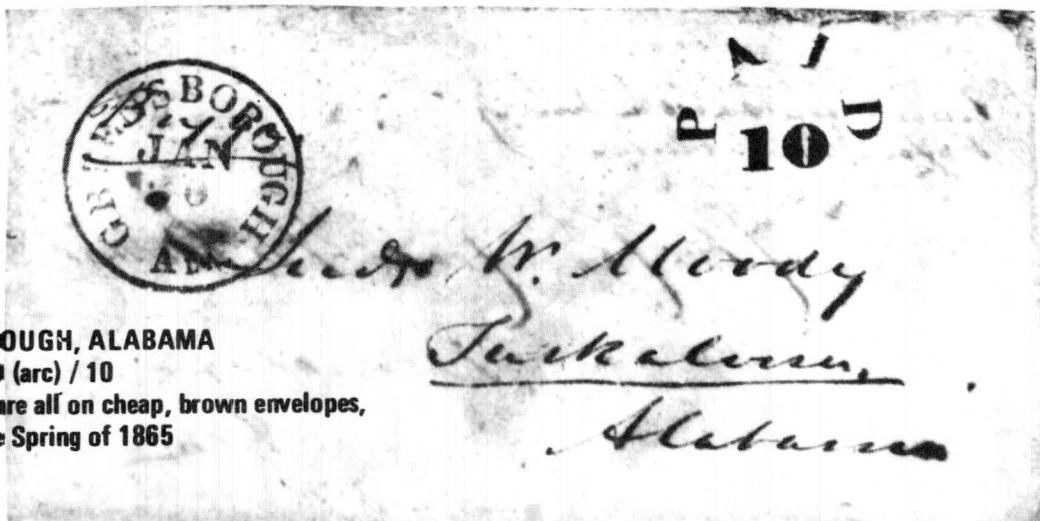 GREENSBOROUGH
JAN
ALA.
PAID
10
W. Moody
Tuskaloosa,
Alabama
OUGH, ALABAMA
(arc) / 10
are all on cheap, brown envelopes,
Spring of 1865